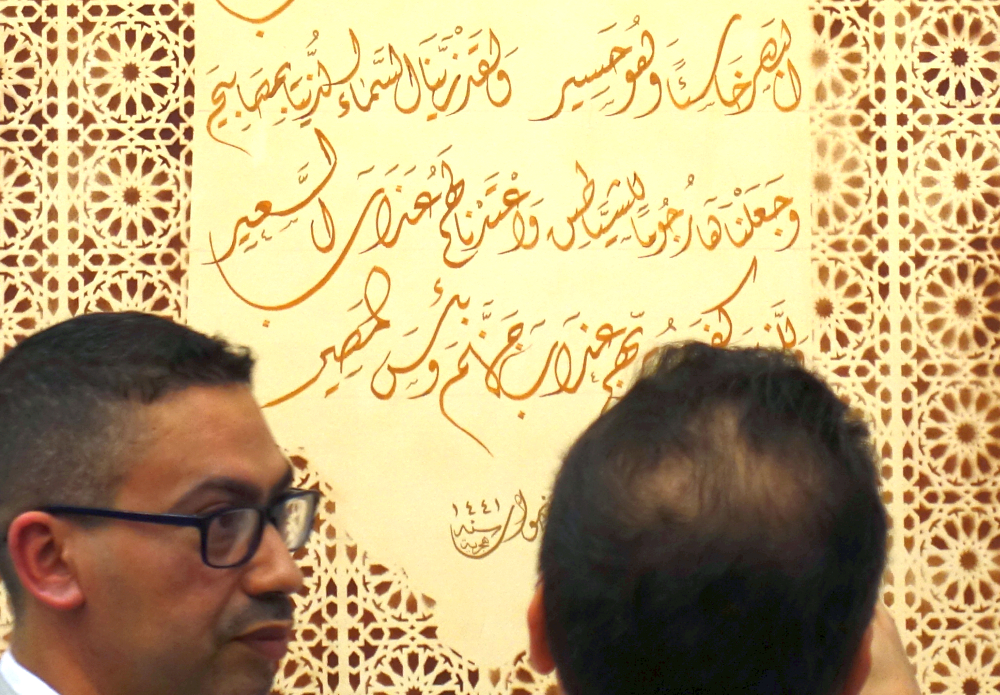 البصر خاسئًا وهو حسير ولقد زينا السماء الدنيا بمصابيح
وجعلناها رجومًا للشياطين وأعتدنا لهم عذاب السعير
وللذين كفروا بربهم عذاب جهنم وبئس المصير
سنة ١٤٤١
هجرية